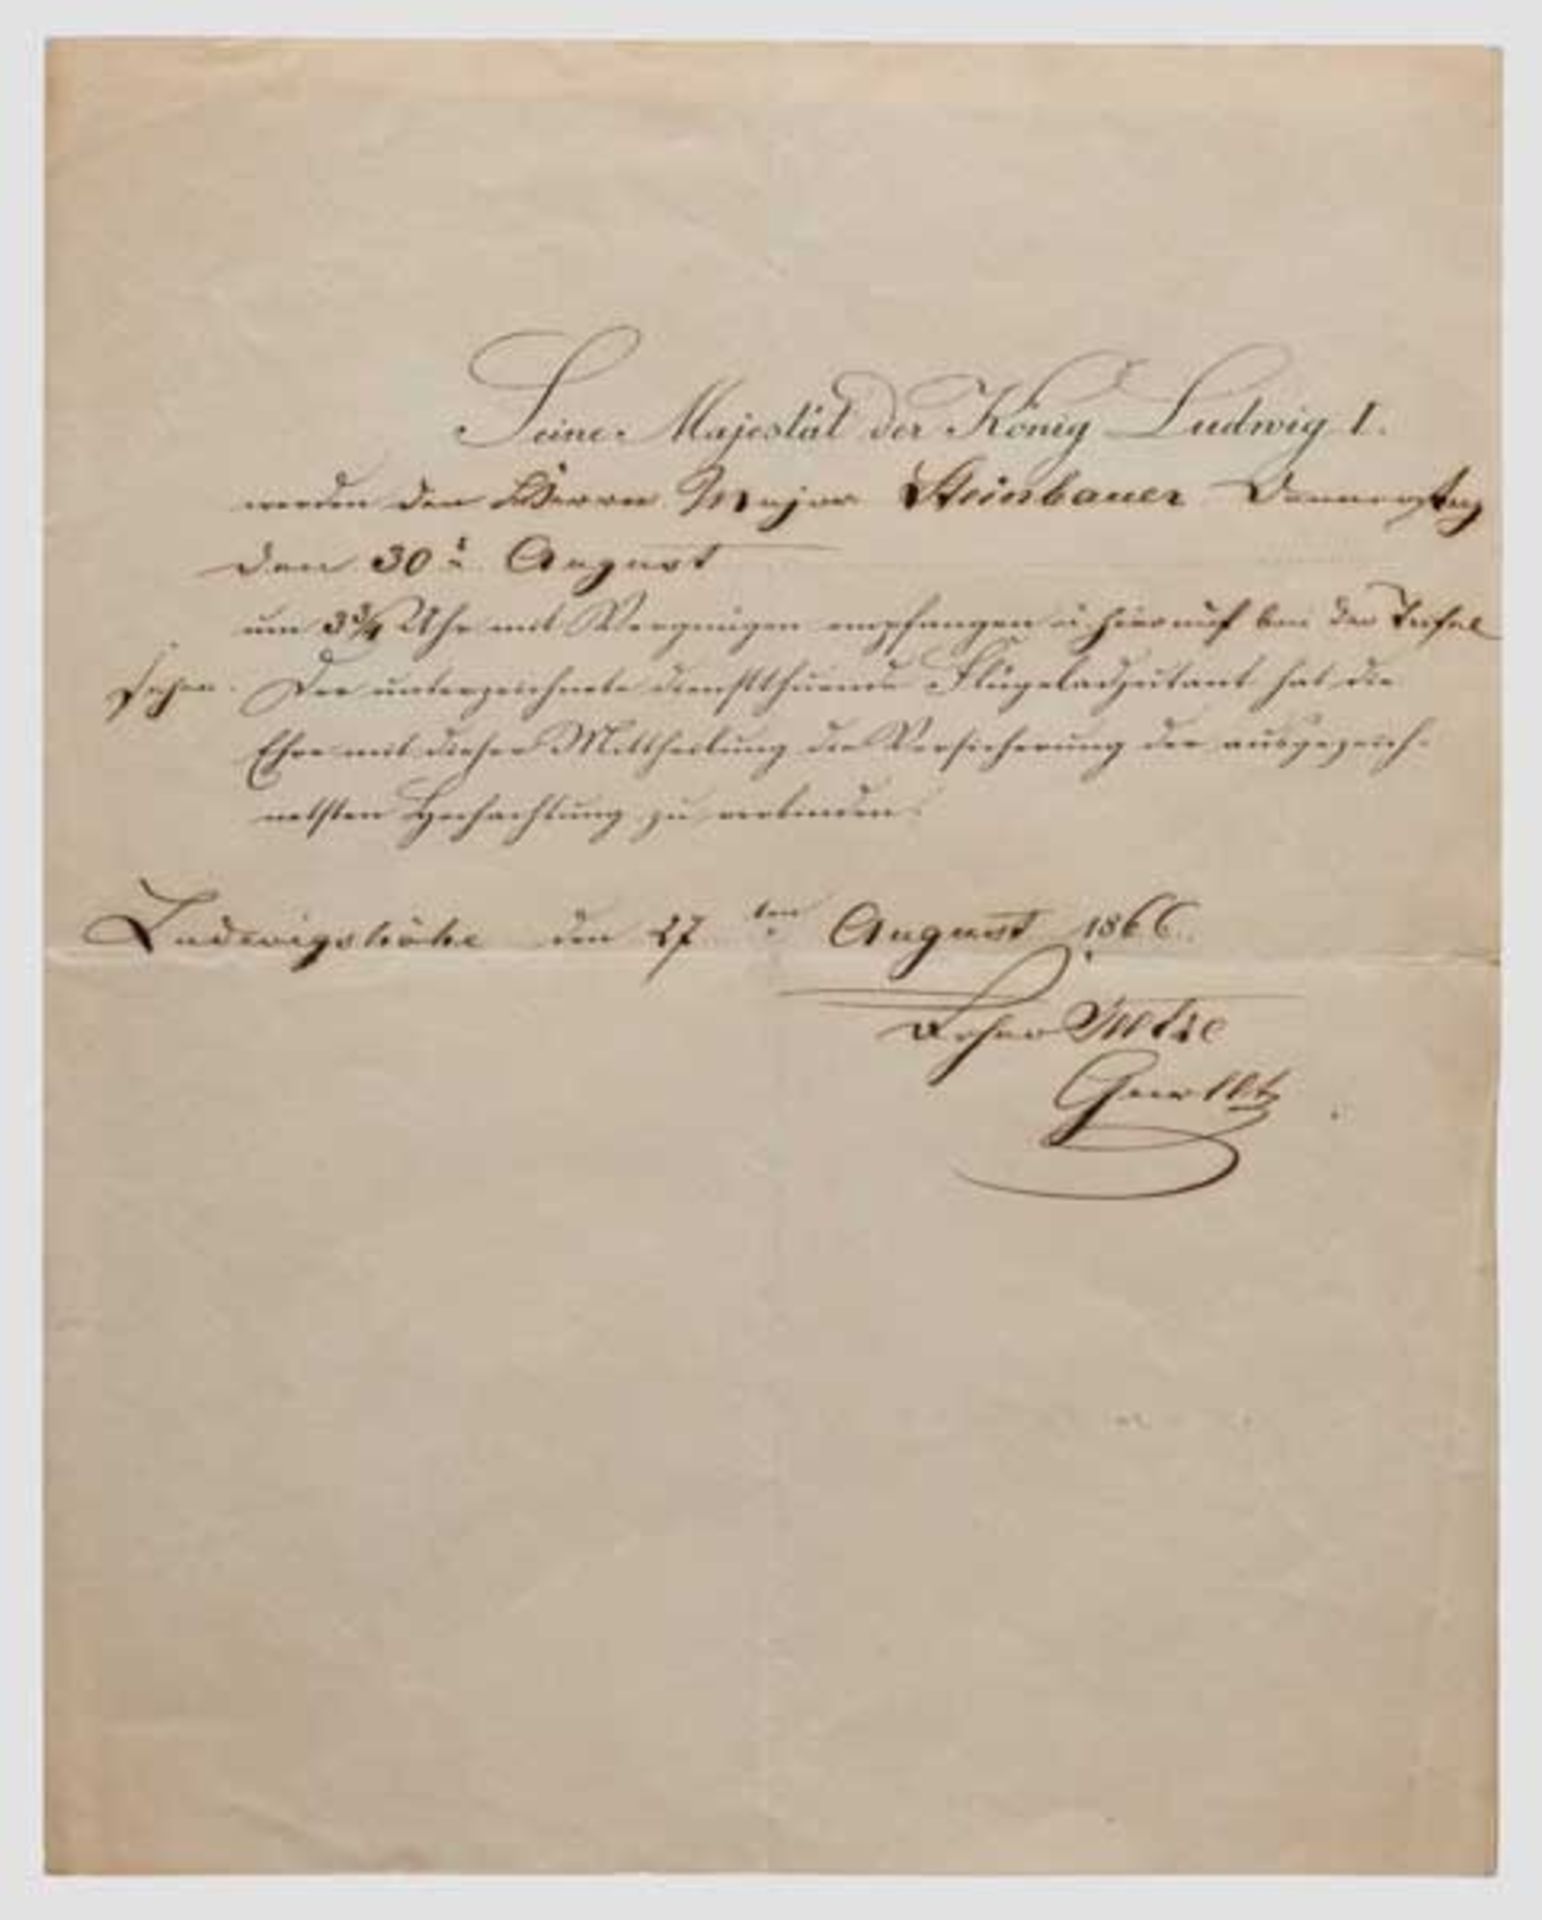 Seine Majestät der König Ludwig I.
werden den Herrn Major Steinbauer Donnerstag
den 30t. August
um 3¾ Uhr mit Vergnügen empfangen u. hierauf bei der Tafel
sehen. Der unterzeichnete dienstthuende Flügeladjutant hat die
Ehre mit dieser Mittheilung die Versicherung der ausgezeich-
netsten Hochachtung zu verbinden.
Ludwigshöhe den 27ten August 1866.